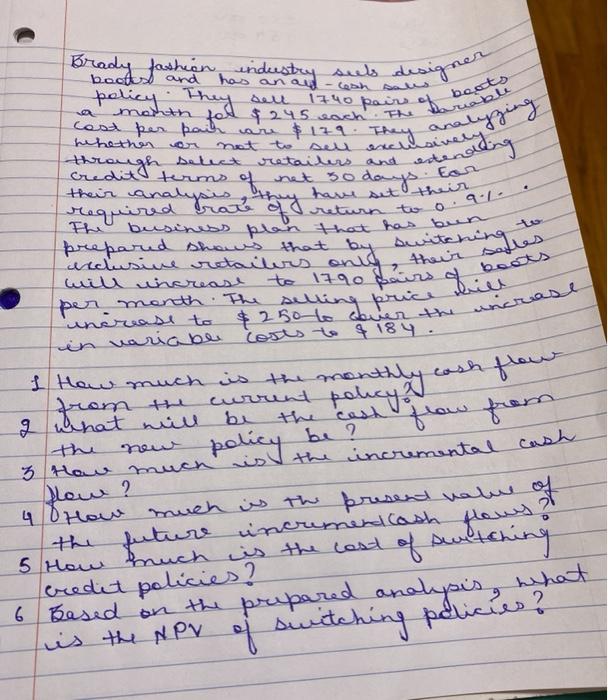 Brady fashion industry sells designer
boots and has an all-cash sales
policy. They sell 1740 pairs of boots
a month for $245 each. The variable
cost per pair are $179. They analyzing
whether or not to sell exclusively
through select retailers and extending
credit terms of net 30 days. For
their analysis, they have set their
required rate of return to 0.9%.
The business plan that has been
prepared shows that by switching to
exclusive retailers only, their sales
will increase to 1790 pairs of boots
per month. The selling price will
increase to $250 to cover the increase
in variable costs to $184.
1 How much is the monthly cash flow
from the current policy?
2 What will be the cash flow from
the new policy be?
3 How much is the incremental cash
flow?
4 How much is the present value of
the future increment cash flows?
5 How much is the cost of switching
credit policies?
6 Based on the prepared analysis, what
is the NPV of switching policies?